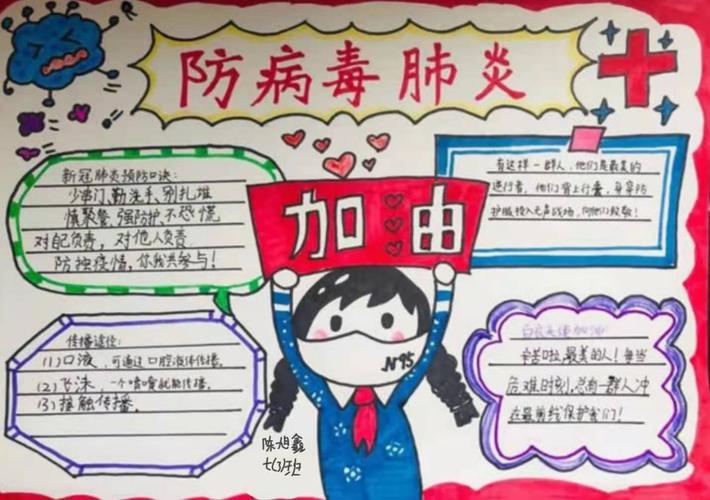 防病毒肺炎
新冠肺炎预防口诀：
少出门，勤洗手，别扎堆
慎聚餐，强防护，不恐慌
对自己负责，对他人负责
防控疫情，你我共参与！
加油
有这样一群人，他们是最美的
逆行者，他们背上行囊，身穿防
护服投入无声战场，向他们致敬！
传播途径：
(1) 口液，可通过口腔液体传播。
(2) 飞沫，一个喷嚏就能传播。
(3) 接触传播。
N95
白衣天使加油
辛苦啦，最美的人！每当
危难时刻，总有一群人冲
在最前线保护我们！
陈旭鑫
七(1)班